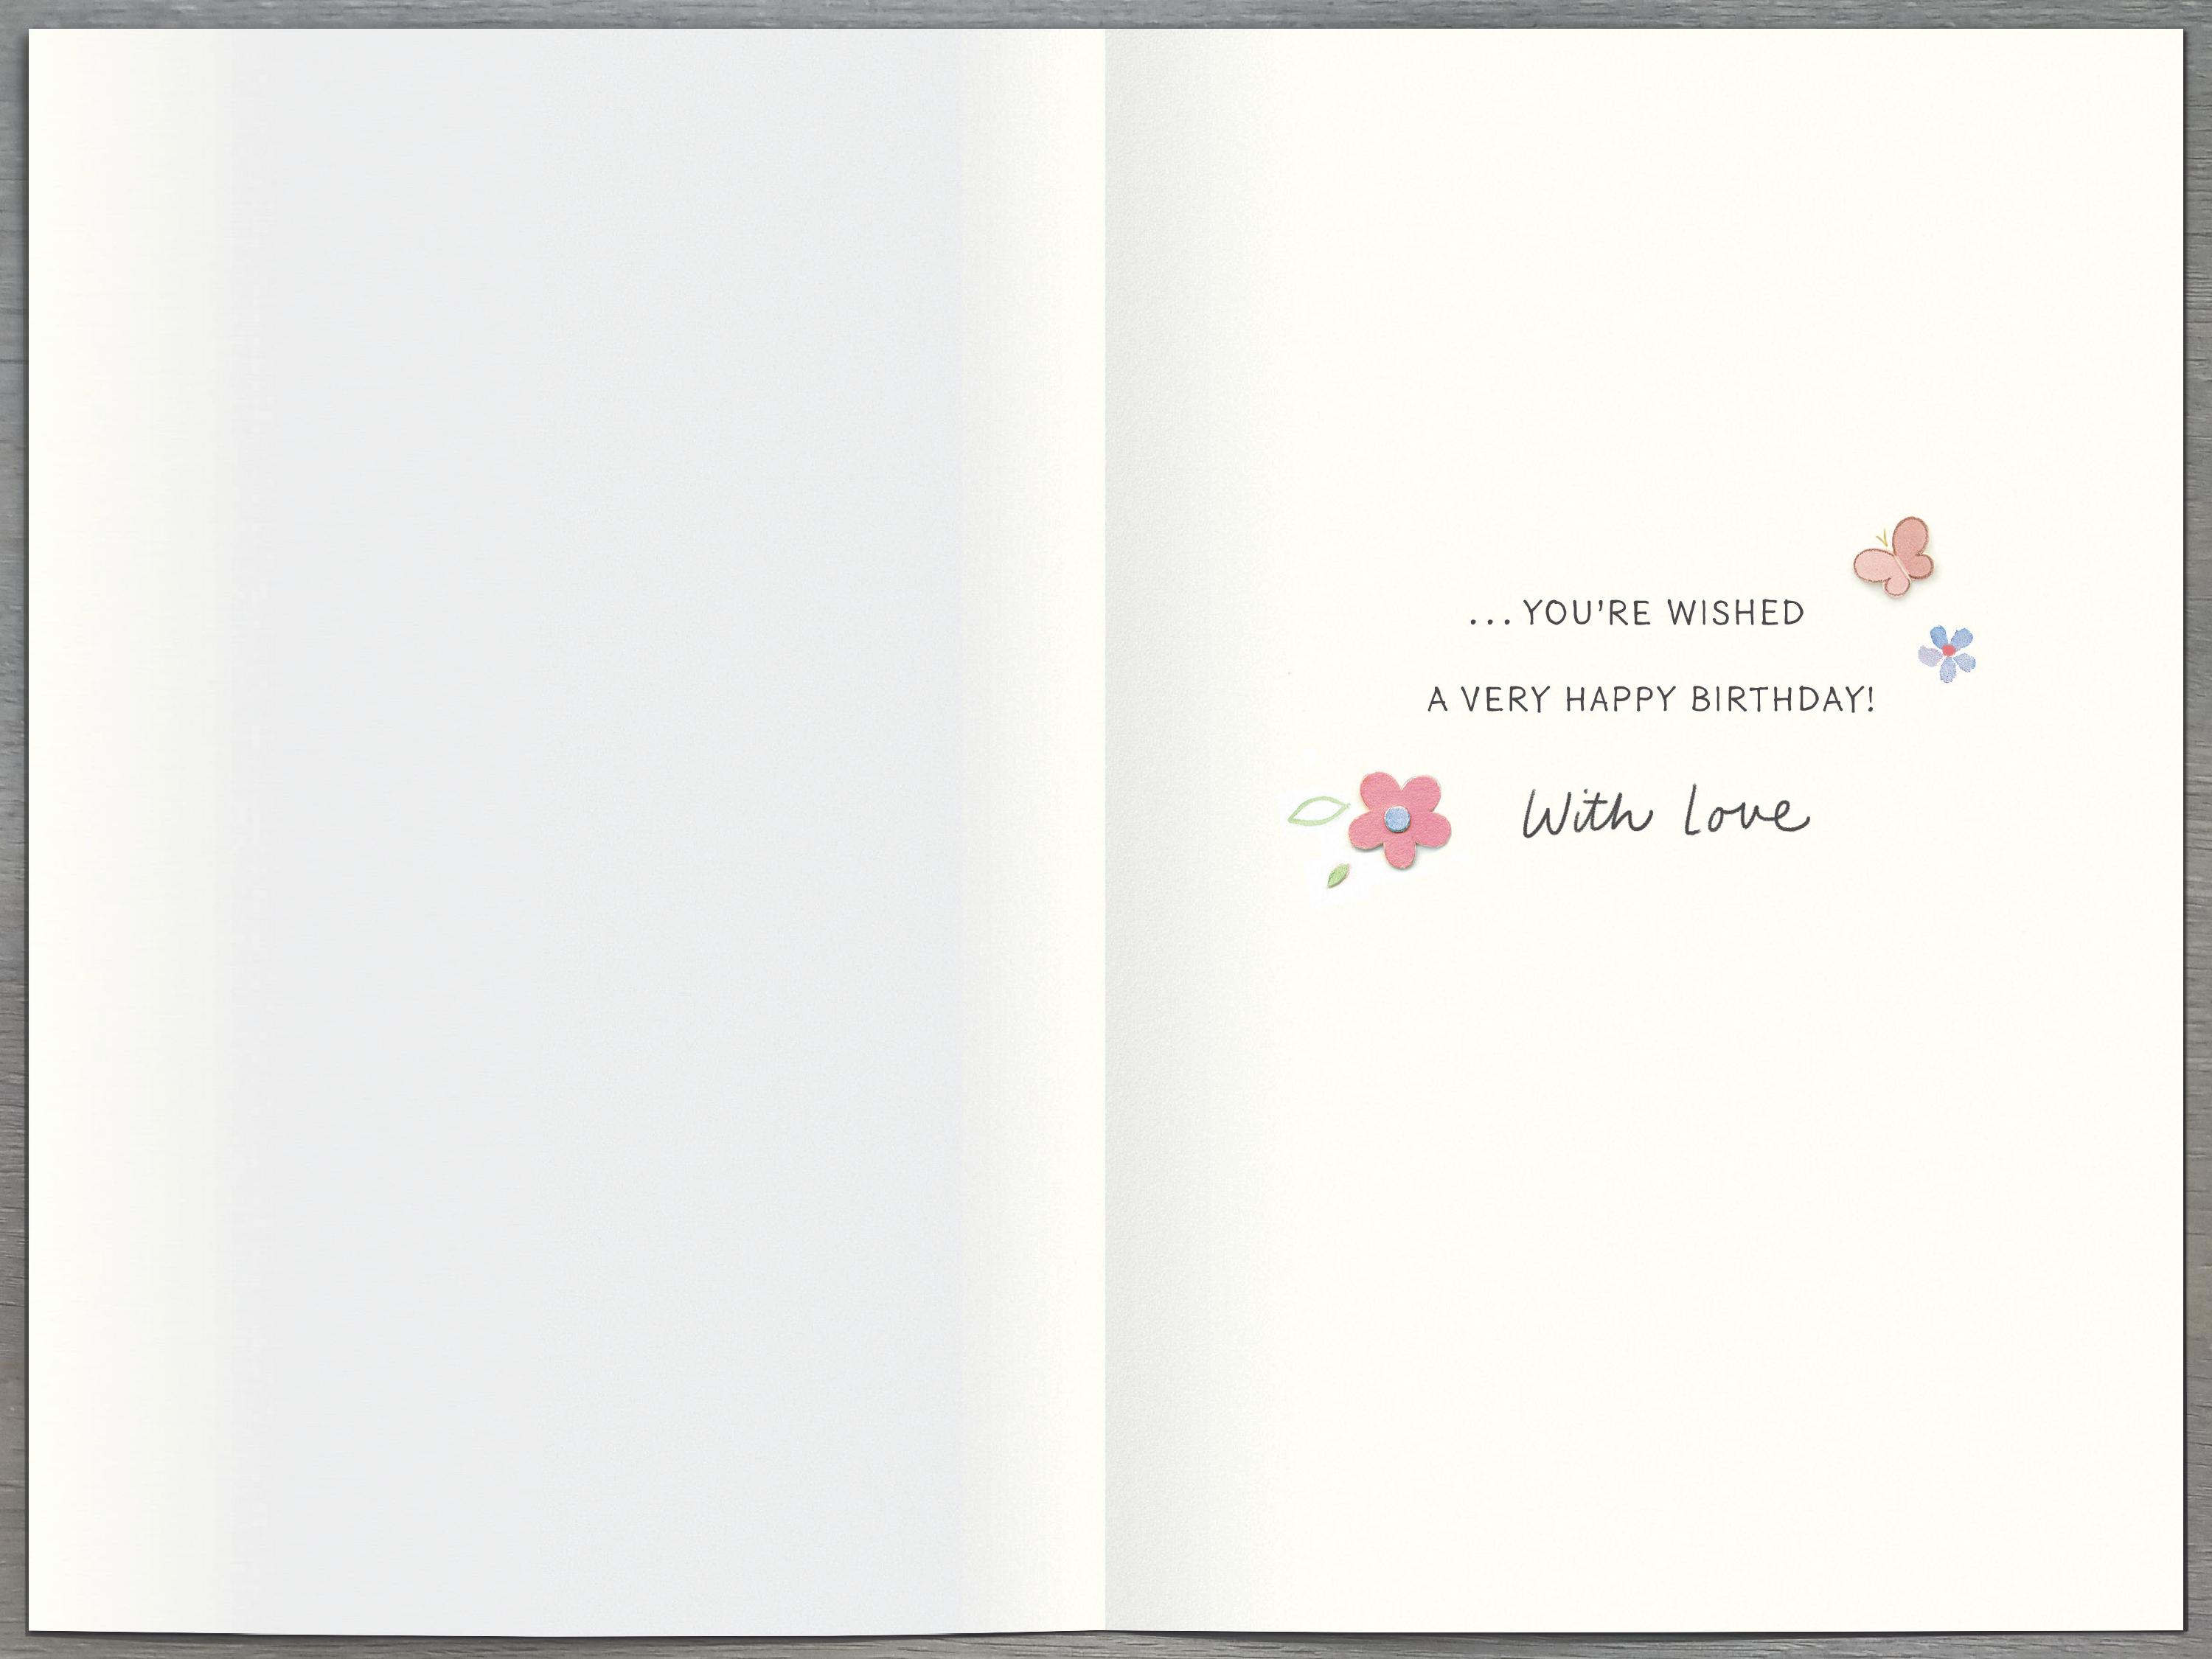 ...YOU'RE WISHED
A VERY HAPPY BIRTHDAY!
With Love